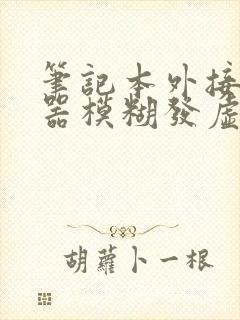 筆記本外接
器模糊發虛
胡蘿卜一根